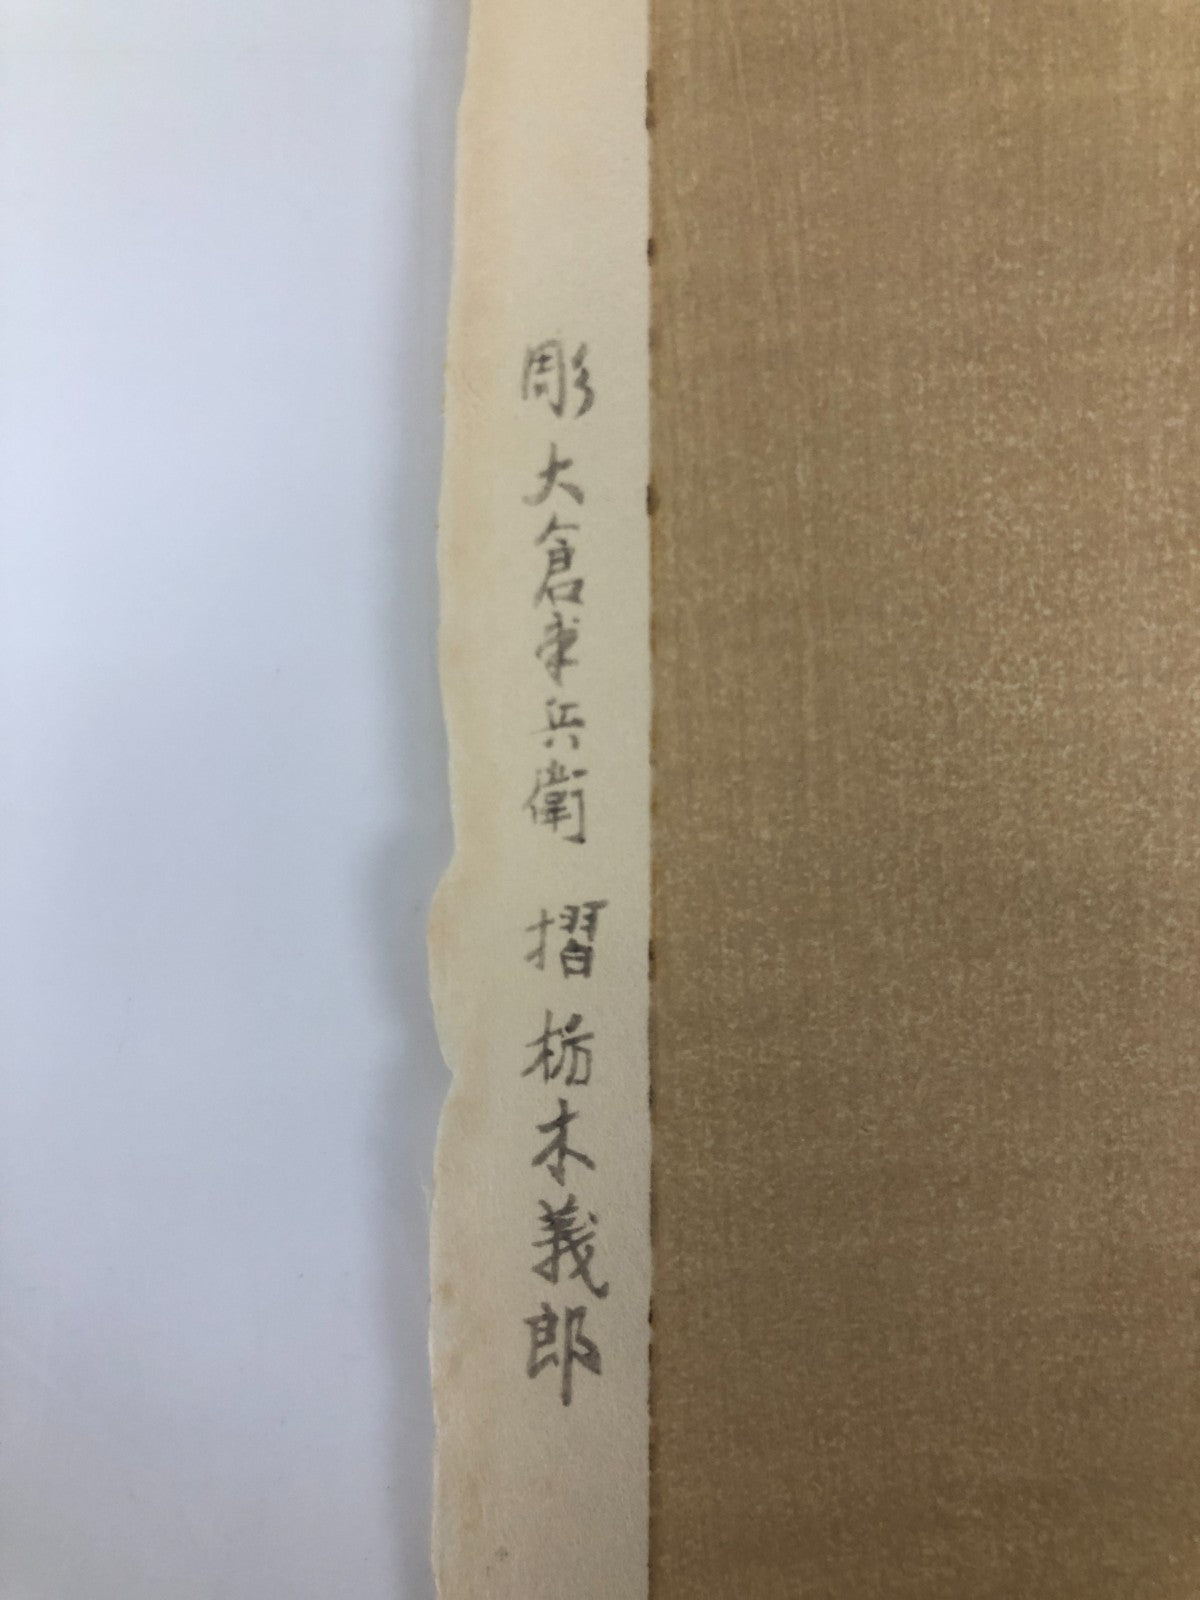 彫 大倉半兵衛 摺 栃木義郎